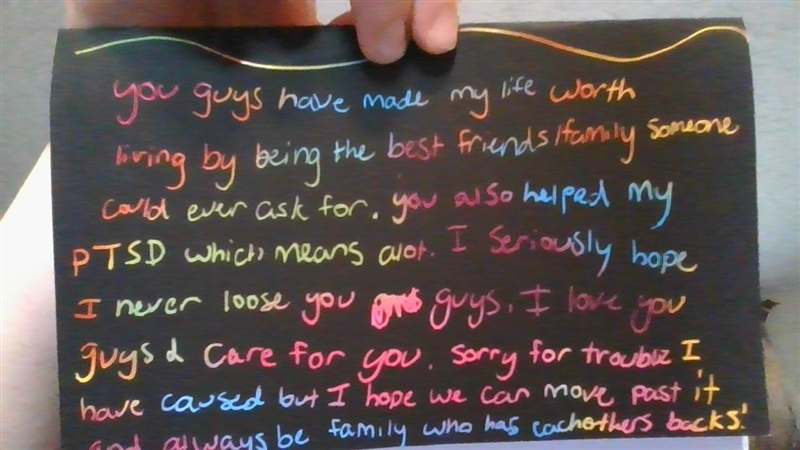 you guys have made my life worth
living by being the best friends/family someone
could ever ask for. you also helped my
PTSD which means alot. I seriously hope
I never loose you guys. I love you
guys & care for you. sorry for trouble I
have caused but I hope we can move past it
and always be family who has eachothers backs!